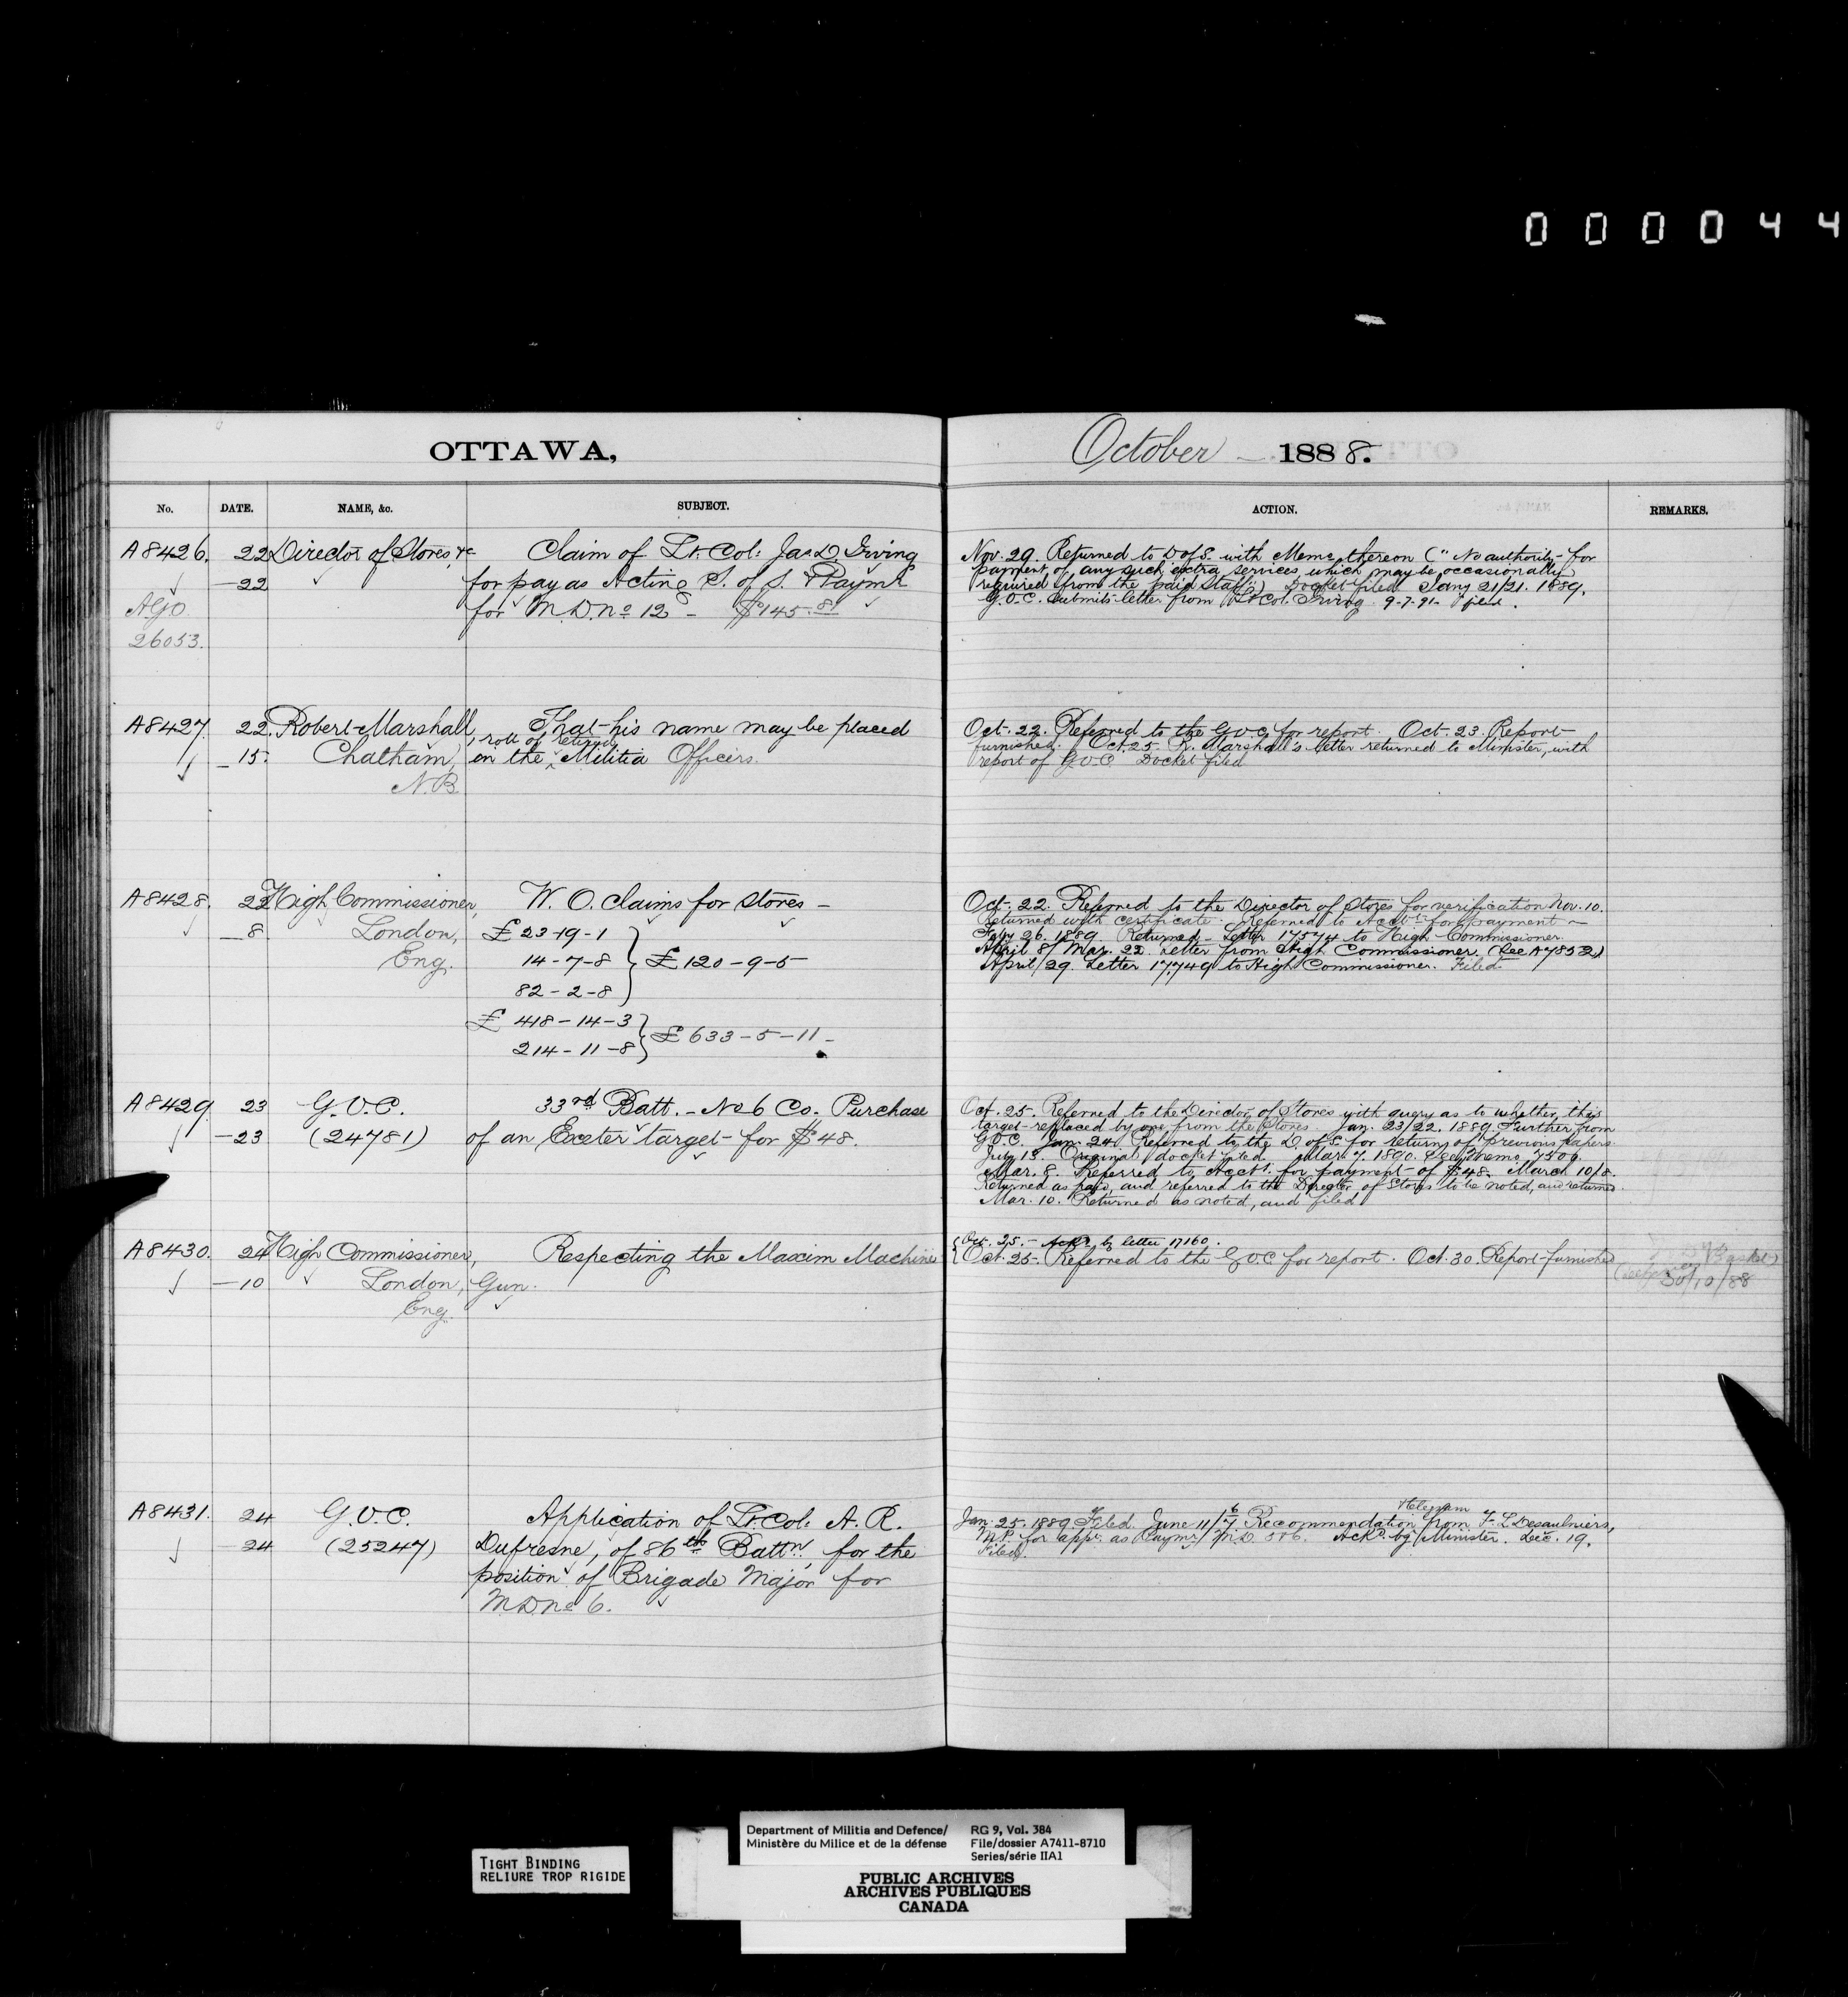 000044
OTTAWA,
October 1888.
No. DATE. NAME, &c. SUBJECT. ACTION. REMARKS.
A8426. 22 Director of Stores, &c Claim of Lt. Col: Jas D Irving
22 for pay as Acting S. of S. & Paymr
A.G.O. for M.D. No 12 - $145.81
26053.
Nov. 29. Returned to D of S. with Memo thereon ("No authority for
payment of any such extra services which may be occasionally
required from the paid Staff") Docket filed Jany 21/21. 1889.
G.O.C. submits letter from Lt Col. Irving 9-7-91- filed.
A8427. 22. Robert Marshall, That his name may be placed
15. Chatham, in the roll of retired Militia Officers.
N.B.
Oct. 22. Referred to the G.O.C. for report. Oct. 23. Report
furnished. Oct. 25. R. Marshall's letter returned to Minister, with
report of G.O.C. Docket filed
A8428. 22 High Commissioner, W. O. Claims for Stores -
8 London, £23-19-1
Eng. 14-7-8 £120-9-5
82-2-8
£418-14-3
214-11-8 £633-5-11-
Oct. 22. Referred to the Director of Stores for verification Nov. 10.
Returned with certificate. Referred to Acctt for payment -
Feby 26. 1889. Returned - Letter 17574 to High Commissioner.
April 8/Mar. 22. Letter from High Commissioner. (See A7853)
April 29. Letter 17749 to High Commissioner. Filed.
A8429. 23 G.O.C. 33rd Batt. - No 6 Co. Purchase
23 (24781) of an Exeter target for $48.
Oct. 25. Referred to the Director of Stores with query as to whether this
target replaced by one from the Stores. Jan. 23/22. 1889. Further from
G.O.C. Jan. 24. Referred to the D of S. for return of previous papers.
July 13. Original docket filed. Mar. 7. 1890. See Memo 7506.
Mar. 8. Referred to Acctt. for payment of $48. March 10/8.
Returned as paid, and referred to the Director of Stores to be noted, and returned.
Mar. 10. Returned as noted, and filed
A8430. 24 High Commissioner, Respecting the Maxim Machine
10 London, Gun.
Eng.
Oct. 25. - Ackd. by letter 17160.
Oct. 25. Referred to the G.O.C. for report. Oct. 30. Report furnished
30/10/88
A8431. 24 G.O.C. Application of Lt. Col: A. R.
24 (25247) Dufresne, of 86th Battn, for the
position of Brigade Major for
M.D. No 6.
Jan. 25. 1889. Filed. June 11/7 Recommendation telegram from F. L Desaulniers,
M.P. for appt. as Paymr M.D. 5 & 6. Ackd. by Minister. Dec. 19.
Filed.
TIGHT BINDING
RELIURE TROP RIGIDE
Department of Militia and Defence/
Ministère du Milice et de la défense
RG 9, Vol. 384
File/dossier A7411-8710
Series/série IIA1
PUBLIC ARCHIVES
ARCHIVES PUBLIQUES
CANADA